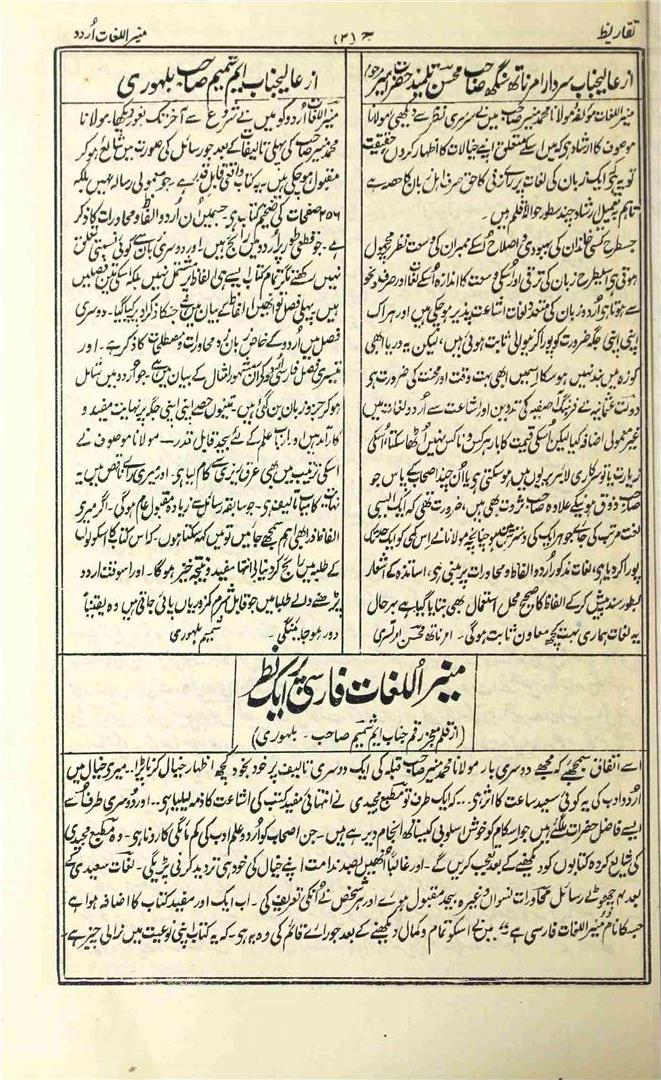 تقاریظ
(۳)
منیر اللغات اُردو
از عالیجناب سردار امرناتھ سنگھ صاحب محسن تلمیذ حضرت
منیر اللغات مؤلفہ مولانا محمد منیر صاحب میں نے سرسری نظر سے دیکھی مولانا
موصوف کا ارشاد ہے کہ میں اسکے متعلق اپنے خیالات کا اظہار کردوں حقیقت
تو یہ ہے کہ ایک زبان کی لغات پر رائے زنی کا حق صرف اہل زبان کا حصہ ہے
تاہم بتعمیل ارشاد چند سطور حوالۂ قلم ہیں۔
جسطرح کسی خاندان کی بہبودی و اصلاح اُسکے ممبران کی وسعت نظر پر محمول
ہوتی ہے اسیطرح زبان کی ترقی اور اُسکی وسعت کا اندازہ اُسکے لغات اور صرف و نحو
سے ہوتا ہے اُردو زبان کی متعدد لغات اشاعت پذیر ہو چکی ہیں اور ہر اک
اپنی اپنی جگہ ضرورت کو پورا کرنیوالی ثابت ہوئی ہیں، لیکن یہ دریا ابھی
کوزہ میں بند نہیں ہو سکا اسمیں ابھی بہت وقت اور محنت کی ضرورت ہے
دولت عثمانیہ نے فرہنگ آصفیہ کی تدوین اور اشاعت سے اُردو لغات میں
غیر معمولی اضافہ کیا لیکن اُسکی قیمت کا بار ہر کس و ناکس نہیں اُٹھا سکتا اُسکی
زیارت یا تو سرکاری لائبریریوں میں ہو سکتی ہے یا اُن چند اصحاب کے پاس جو
صاحب ذوق ہونیکے علاوہ صاحب ثروت بھی ہیں، ضرورت تھی کہ ایک ایسی
لغت مرتب کی جائے جو ہر ایک کی دسترس میں ہو چنانچہ مولانا نے اس کمی کو ایک حد تک
پورا کر دیا ہے لغات مذکور اُردو الفاظ و محاورات پر مبنی ہے، اساتذہ کے اشعار
بطور سند پیش کر کے الفاظ کا صحیح محل استعمال بھی بتایا گیا ہے بہرحال
یہ لغات ہماری بہت کچھ معاون ثابت ہوگی۔ امرناتھ محسن امرتسری
از عالیجناب ایم شمیم صاحب بلہوری
منیر اللغات اُردو کو میں نے شروع سے آخر تک بغور دیکھا۔ مولانا
محمد منیر صاحب کی پہلی تالیفات کے بعد جو رسائل کی صورت میں شائع ہو کر
مقبول ہو چکی ہیں یہ کتاب واقعی قابل قدر ہے۔ جو معمولی رسالہ نہیں بلکہ
۲۵۶ صفحات کی ضخیم کتاب ہے جسمیں اُن اُردو الفاظ و محاورات کا ذکر
ہے۔ جو قطعی طور پر اُردو میں رائج ہیں۔ اور دوسری زبان سے کوئی نسبتی تعلق
نہیں رکھتے مگر تمام کتاب ایسے ہی الفاظ پر مشتمل نہیں بلکہ اسکی تین فصلیں
ہیں پہلی فصل تو انھیں الفاظ کے بیان میں ہے جنکا ذکر اوپر کیا گیا۔ دوسری
فصل میں اُردو کے خاص زبان و محاورات و مصطلحات کا ذکر ہے۔ اور
تیسری فصل فارسی کے اُن مشہور افعال کے بیان میں ہے۔ جو اُردو میں شامل
ہو کر جزو زبان بن گئی ہیں۔ تینوں حصے اپنی اپنی جگہ پر نہایت مفید و
کارآمد ہیں اور ارباب علم کے لئے بیحد قابل قدر۔ مولانا موصوف نے
اسکی ترتیب میں بڑی عرق ریزی سے کام لیا ہے۔ اور میری رائے ناقص میں یہ
نہایت کامیاب تالیف ہے۔ جو سابقہ رسائل سے زیادہ مقبول عام ہوگی۔ اگر میری
الفاظ ذرا بھی اہم سمجھے جائیں تو میں کہہ سکتا ہوں۔ کہ اس کتاب کا اسکولوں
کے طلبہ میں رائج کر دینا بے انتہا مفید و نتیجہ خیز ہوگا۔ اور اسوقت اردو
پڑھنے والے طلبا میں جو قابل شرم کمزوریاں پائی جاتی ہیں وہ یقیناً
دور ہو جائینگی۔ شمیم بلہوری
منیر اللغات فارسی پر ایک نظر
(از قلم معجز رقم جناب ایم شمیم صاحب۔ بلہوری)
اسے اتفاق سمجھئے کہ مجھے دوسری بار مولانا محمد منیر صاحب قبلہ کی ایک دوسری تالیف پر خود بخود کچھ اظہار خیال کرنا پڑا۔ میری خیال میں
اُردو ادب کی یہ کوئی سعید ساعت کا اثر ہے۔۔ کہ ایک طرف تو مطبع مجیدی نے انتہائی مفید کتب کی اشاعت کا ذمہ لیلیا ہے۔ اور دوسری طرف اُسے
ایسے فاضل حضرات ملگئے ہیں جو اسکام کو خوش اسلوبی کیساتھ انجام دیرہے ہیں۔ جن اصحاب کو اُردو علم ادب کی کم مائگی کا رونا ہے۔ وہ مطبع مجیدی
کی شایع کردہ کتابوں کو دیکھنے کے بعد تعجب کریں گے۔ اور غالباً اُنھیں بصد ندامت اپنے خیال کی خود ہی تردید کرنی پڑیگی۔ لغات سعیدی کے
بعد یہ چھوٹے رسائل محاورات نسواں وغیرہ بیحد مقبول ہوئے اور ہر شخص نے اُنکی تعریف کی۔ اب ایک اور مفید کتاب کا اضافہ ہوا ہے
جسکا نام منیر اللغات فارسی ہے میں نے اسکو تمام و کمال دیکھنے کے بعد جو رائے قائم کی وہ یہ ہے۔ کہ یہ کتاب اپنی نوعیت میں نرالی چیز ہے۔